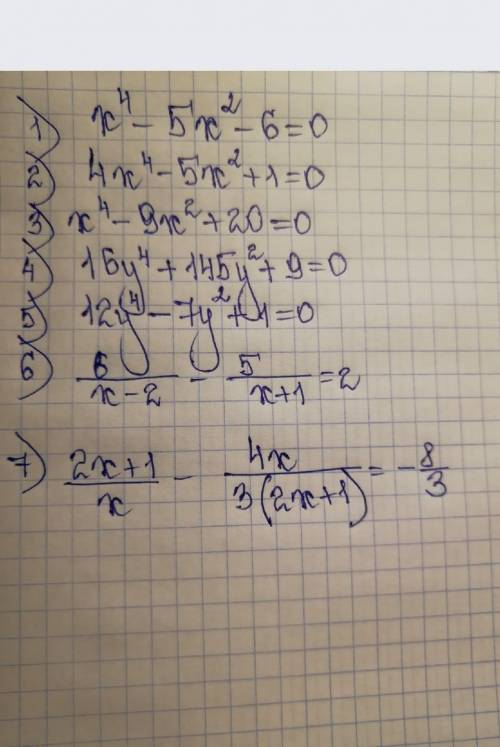 1) x⁴ - 5x² - 6 = 0
2) 4x⁴ - 5x² + 1 = 0
3) x⁴ - 9x² + 20 = 0
4) 16y⁴ + 145y² + 9 = 0
5) 12y⁴ - 7y² + 1 = 0
6) 6/(x-2) - 5/(x+1) = 2
7) (2x+1)/x - 4x/(3(2x+1)) = -8/3